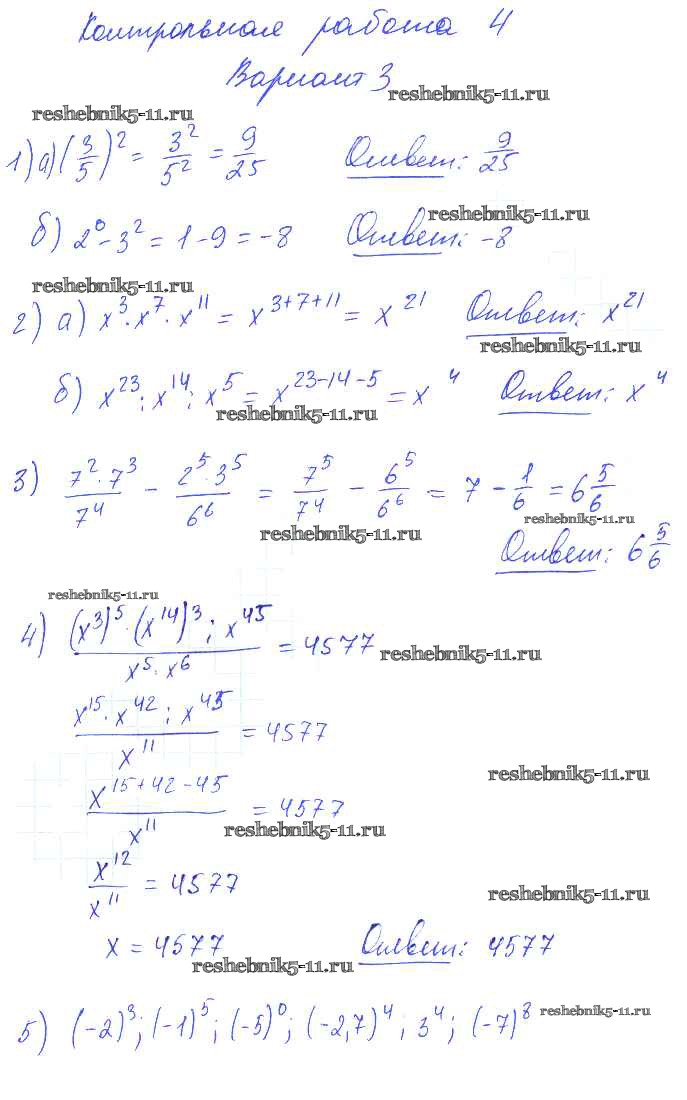 Контрольная работа 4
Вариант 3
reshebnik5-11.ru
reshebnik5-11.ru
1) а) (3/5)² = 3²/5² = 9/25 Ответ: 9/25
reshebnik5-11.ru
б) 2⁰ - 3² = 1 - 9 = -8 Ответ: -8
reshebnik5-11.ru
2) а) x³ · x⁷ · x¹¹ = x³⁺⁷⁺¹¹ = x²¹ Ответ: x²¹
reshebnik5-11.ru
б) x²³ : x¹⁴ : x⁵ = x²³⁻¹⁴⁻⁵ = x⁴ Ответ: x⁴
reshebnik5-11.ru
3) 7²·7³/7⁴ - 2⁵·3⁵/6⁶ = 7⁵/7⁴ - 6⁵/6⁶ = 7 - 1/6 = 6 5/6
reshebnik5-11.ru
reshebnik5-11.ru
Ответ: 6 5/6
reshebnik5-11.ru
4) (x³)⁵ · (x¹⁴)³ : x⁴⁵ / x⁵ · x⁶ = 4577
reshebnik5-11.ru
x¹⁵ · x⁴² : x⁴⁵ / x¹¹ = 4577
reshebnik5-11.ru
x¹⁵⁺⁴²⁻⁴⁵ / x¹¹ = 4577
reshebnik5-11.ru
x¹² / x¹¹ = 4577
reshebnik5-11.ru
x = 4577 Ответ: 4577
reshebnik5-11.ru
5) (-2)³; (-1)⁵; (-5)⁰; (-2,7)⁴; 3⁴; (-7)⁸
reshebnik5-11.ru